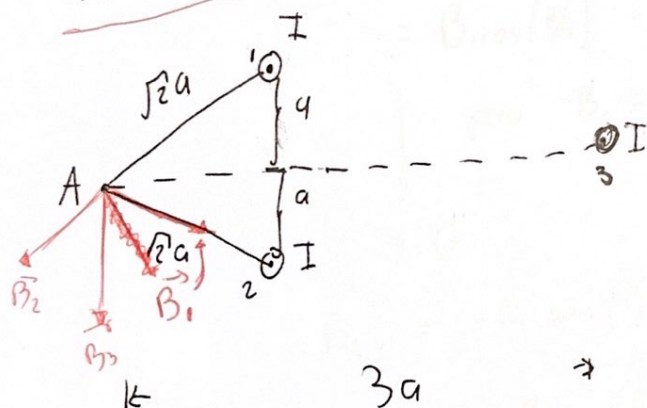 I
1
√2a
a
I
3
A
a
√2a
I
2
B₂
B₁
B₃
3a